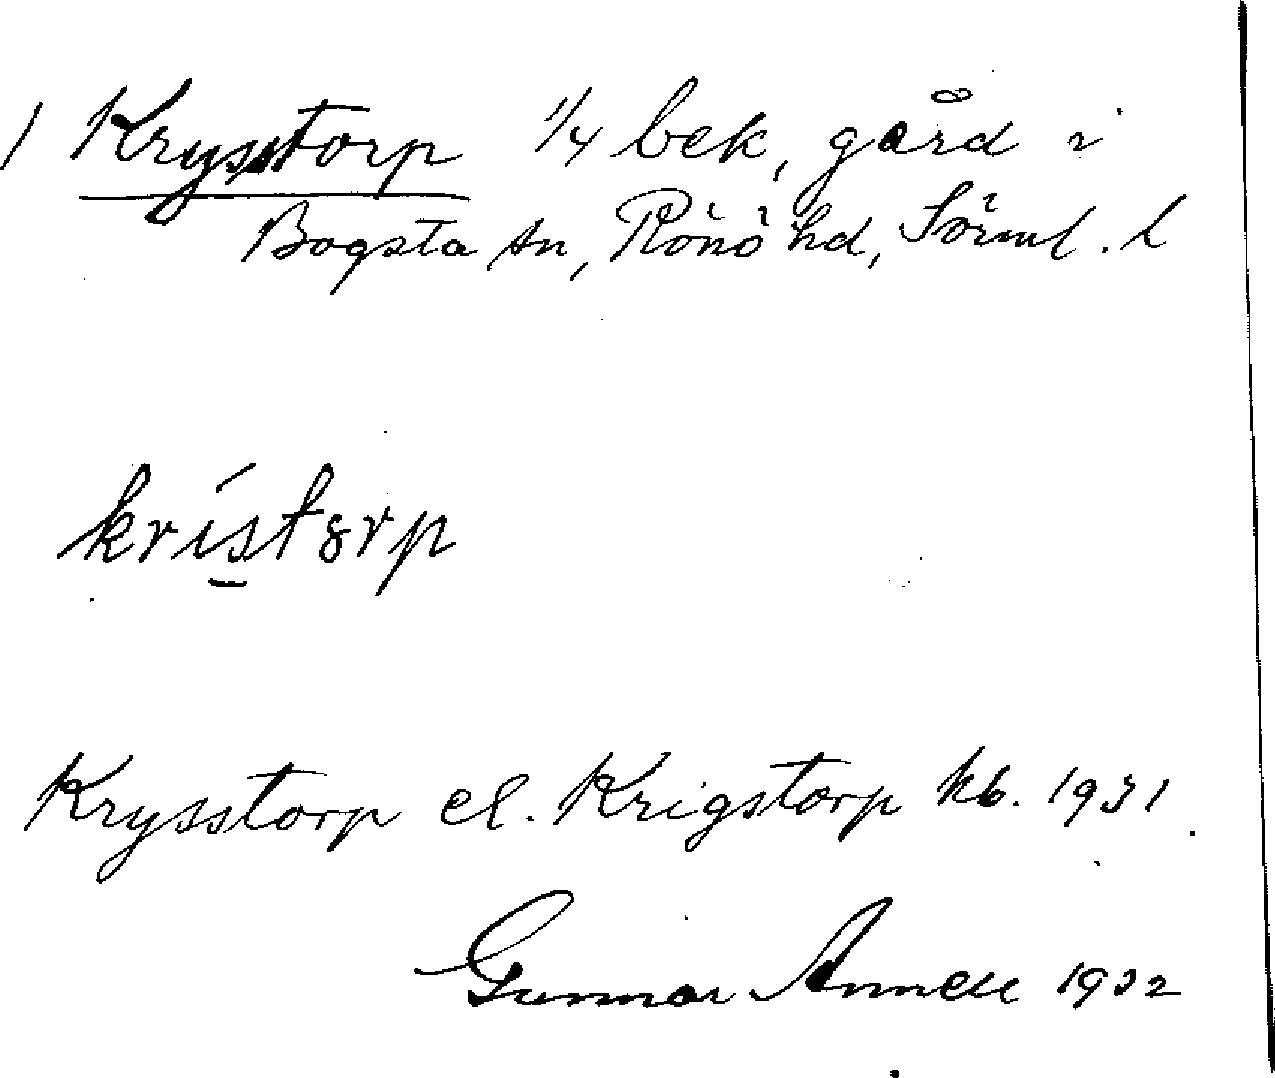 1 Krysstorp 1/4 bek, gård i
Bogsta sn, Rönö hd, Sörml. l
krístorp
Krysstorp el. Krigstorp kb. 1931.
Gunnar Annell 1932